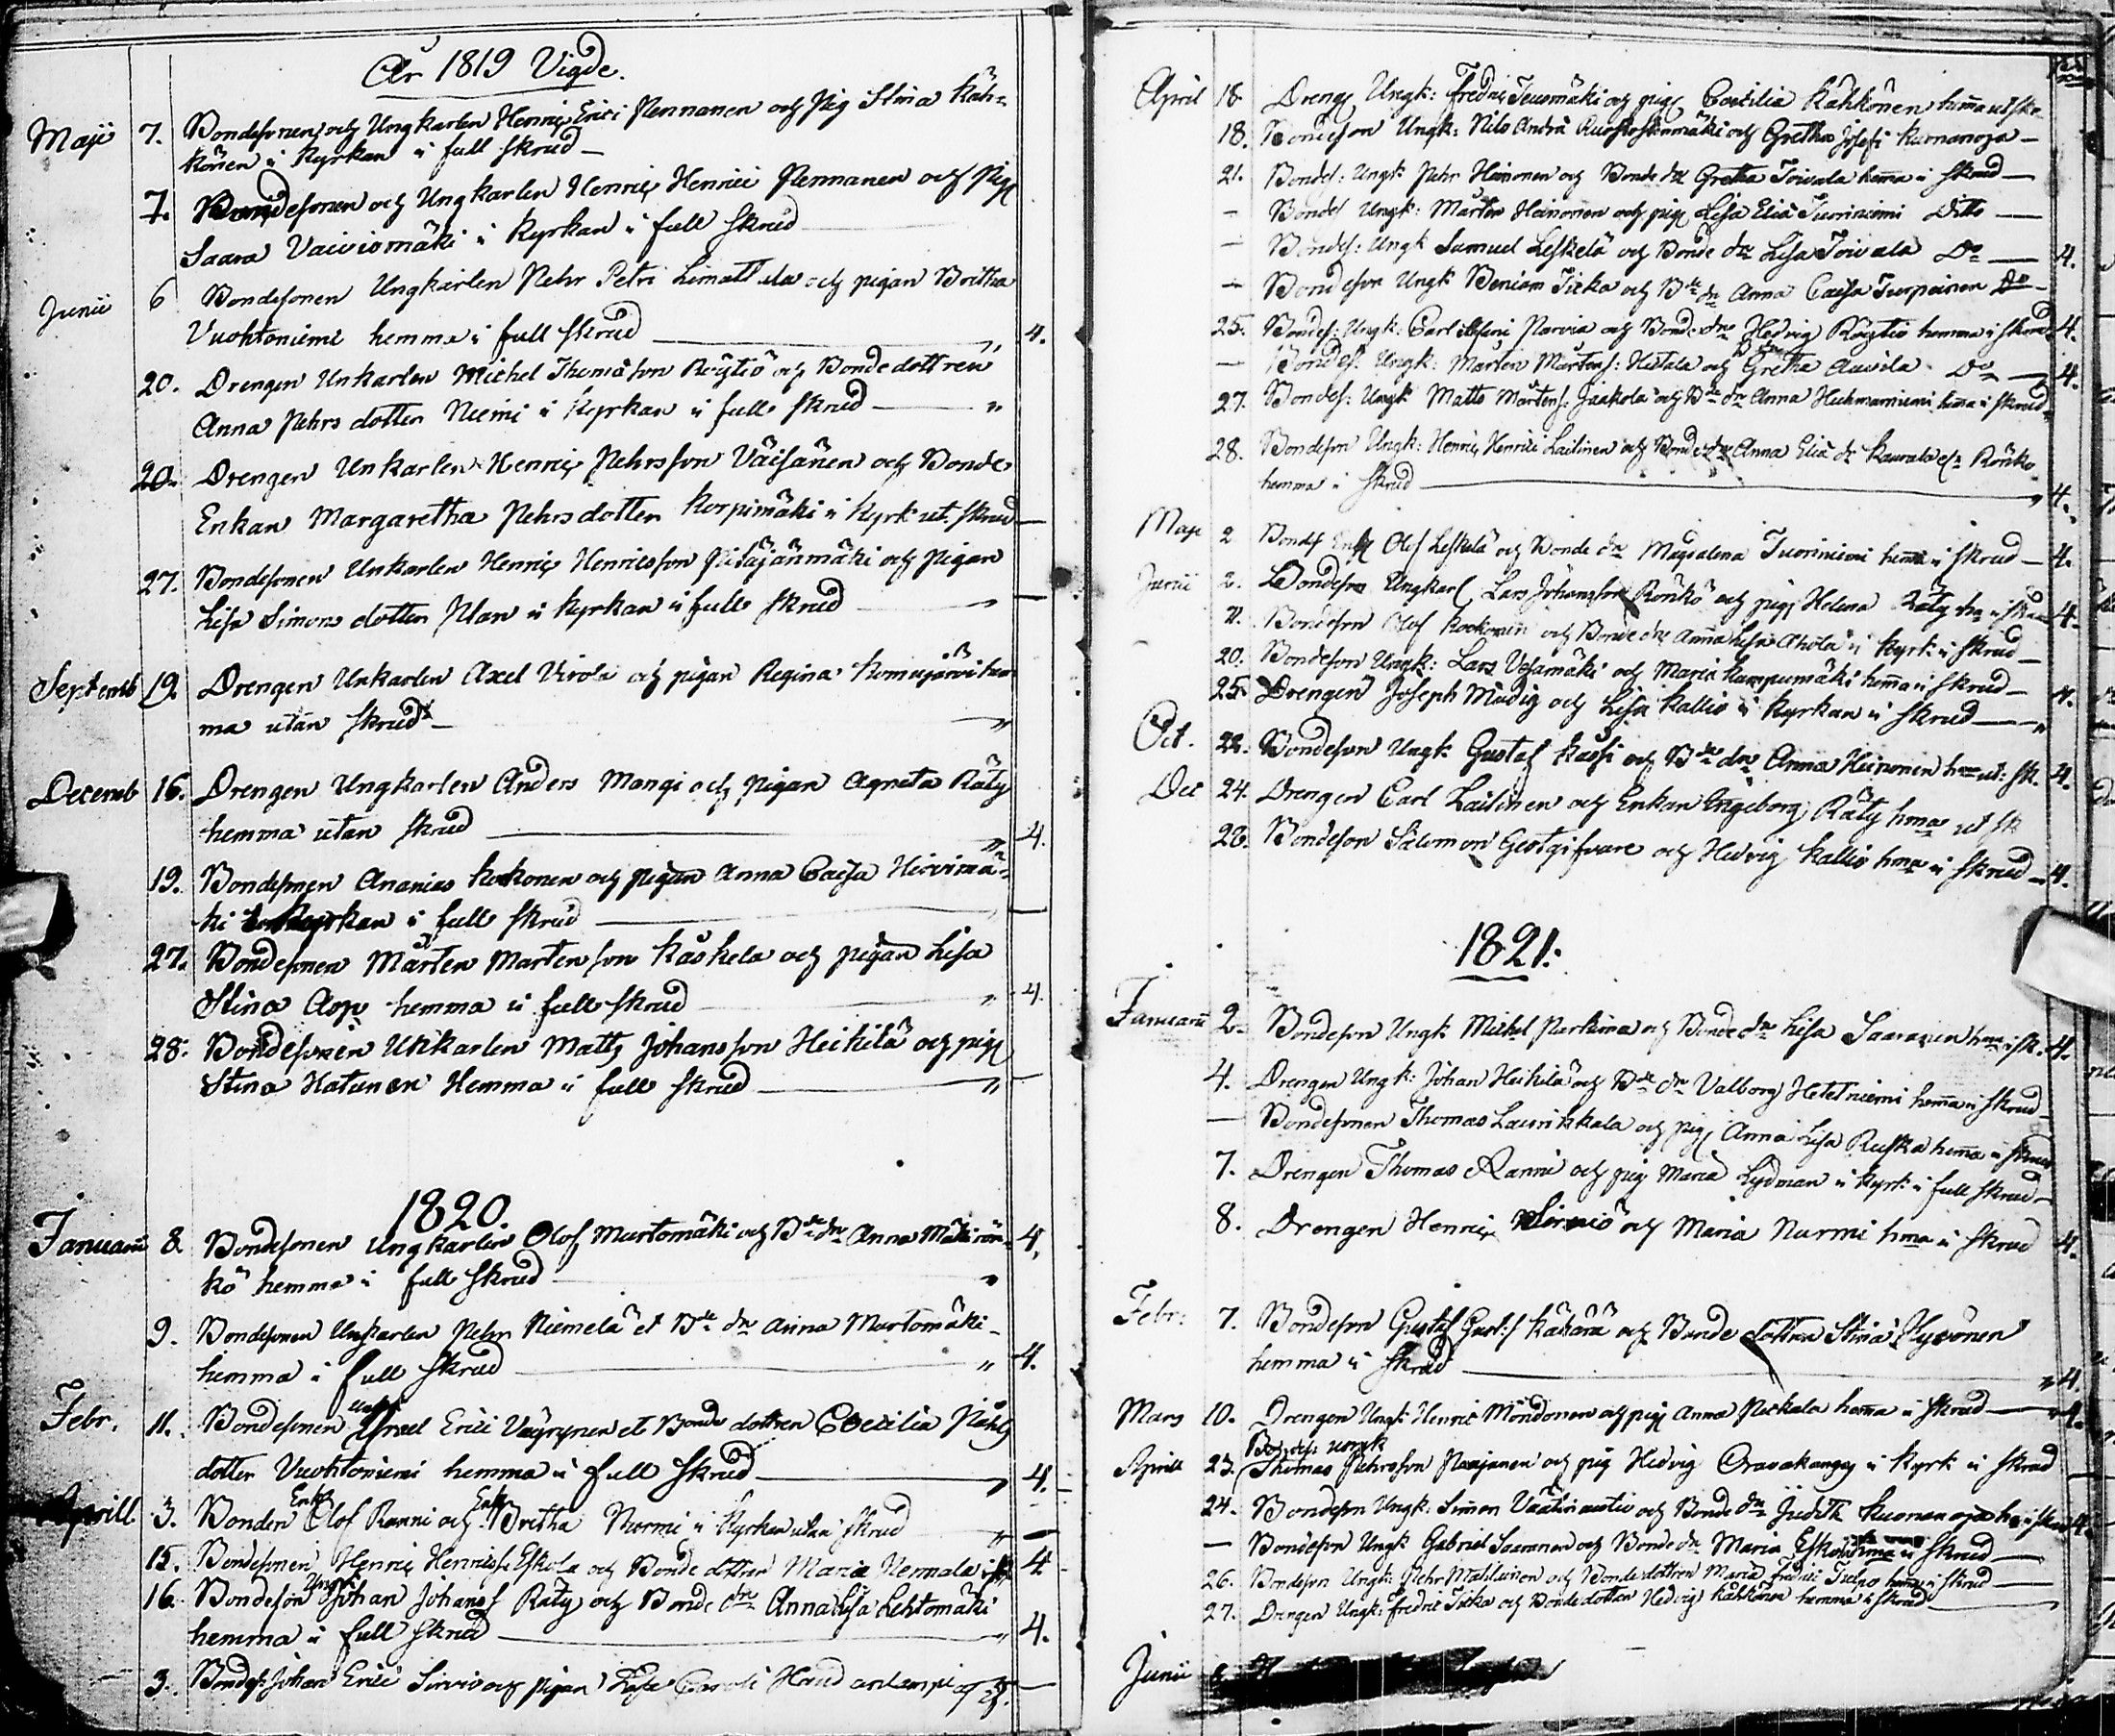 År 1819 Vigde.
Maji 7. Bondesonen och Ungkarlen Henric Erici Pennanen och Pig Stina Käh-
könen i Kyrkan i full skrud —
7. Bondesonen och Ungkarlen Henric Henrici Pennanen och Pig
Saara Vaiviomäki i Kyrkan i full skrud
Junii 6 Bondesonen Ungkarlen Pehr Petri Limattala och pigan Britha
Vuohtoniemi hemma i full skrud — „ 4.
20. Drengen Unkarlen Michel Thomasson Röytiö och Bondedottren
Anna Pehrs dotter Niemi i Kyrkan i full skrud — „
20. Drengen Unkarlen Henric Pehrsson Väisänen och Bonde
Enkan Margaretha Pehrsdotter Korpimäki i Kyrk ut. skrud —
27. Bondesonen Unkarlen Henric Henricsson och Pigan
Lisa Simons dotter i Kyrkan i full skrud —
Septemb 19. Drengen Unkarlen Axel Virola och pigan Regina hem
ma utan skrud — „
Decemb 16. Drengen Ungkarlen Anders Mangi och Pigan Agneta Räty
hemma utan skrud — „ 4.
19. Bondesonen Ananias Kokonen och pigan Anna Caisa Hirvimä-
ki Kyrkan i full skrud —
27. Bondesonen Mårten Martensson Kaskela och pigan Lisa
Stina Asp hemma i full skrud — „ 4.
28. Bondesonen Unkarlen Matts Johansson Heikilä och pig
Stina Hatunen Hemma i full skrud — „
1820.
Januarii 8 Bondesonen Ungkarlen Olof Murtomäki och Bde dr Anna Mäkirön- 4.
kö hemma i full skrud
9. Bondesonen Ungkarlen Pehr Niemelä et Bde dr Anna Murtomäki-
hemma i full skrud — „ 4.
Febr. 11. Bondesonen Israel Erici Väyrynen et Bonde dottren Cecilia Påhls
dotter Vuohtoniemi hemma i full skrud — 4.
Aprill 3. Bonden Enkl Olof Ranni och Enk Britha Nurmi i Kyrkan utan skrud „ —
15. Bondesonen Henric Henricss. Eskola och Bonde dottren Maria Nermala i 4
16. Bondeson Ungk Johan Johanss Räty och Bonde dtr Anna Lisa Lehtomäki
hemma i full skrud — „ 4.
3. Bondes: Johan Erici Sirvio och pigan Lisa —
April 18 Dreng Ungk: Fredric Teuomäki och pig Cecilia Kähkönen hemma ut skr
18. Bondeson Ungk: Nils Andrä och Gretha Josefi Kurnanoja —
21. Bondes: Ungk Pehr Heinonen och Bonde dtr Gretha Toivala hema i skrud —
— Bondes Ungk: Mårten Heinonen och pig Lisa Eliä Tuoriniemi Ditto —
— Bondes: Ungk Samuel Leskelä och Bonde dtr Lisa Toivala Do — 4.
— Bondeson Ungk Beniam Ticka och Bde dr Anna Caisa Turpeinen Do —
25. Bondes: Ungk: Carl Parvia och Bonde dtr Hedvig Röytiö hemma i skrud 4.
— Bondes: Ungk: Mårten Mårtens: Hietala och Gretha Auvila Do — 4.
27. Bondes: Ungk Matts Mårtens: Jaakola och Bde dr Anna Huhmarniemi hma i skrud
28. Bondeson Ungk: Henric Henrici Lailinen och Bonde dtr Anna Eliä dr Kaurala Rönkö
hemma i skrud — „ 4.
Maji 2 Bondes Enkl Olof Leskelä och Bonde dtr Magdalena Tuoriniemi hema i skrud — 4.
Junii 2. Bondeson Ungkarl Lars Johansson Rönkö och pig Helena Räty hma i skrud 4.
11. Bondeson Olof Kockonen och Bonde dtr Anna Lisa Ahola i Kyrk: i skrud —
20. Bondeson Ungk: Lars och Maria Kumpumäki hema i skrud — 4.
25. Drengen Joseph Modig och Lisa Kallio i Kyrkan i skrud — „
Oct. 22. Bondeson Ungk. Gustaf Kassi och Bde dtr Anna Heinonen hma ut: sk. 4.
Dec 24. Drengen Carl Lailinen och Enkan Ingeborg Räty hma ut sk
28. Bondeson Salomon Gestgifvare och Hedvig Kallio hma i skrud — 4.
1821.
Januarii 2. Bondeson Ungk Michel Parkima och Bonde dtr Lisa Saaranen hma i sk. 4.
4. Drengen Ungk: Johan Heikilä och Bde dr Valborg Hetetniemi hema i skrud
— Bondesonen Thomas Laurikkala och pig Anna Lisa Ruska hema i skrud
7. Drengen Thomas Ranni och pig Maria Lydman i Kyrk i full skrud
8. Drengen Henric Sirviö och Maria Nurmi hma i skrud 4.
Febr: 7. Bondeson Gustaf Gust:s Käkärä och Bonde dottren Stina Hyvönen
hemma i skrud — „ 4.
Mars 10. Drengen Ungk Henric Möndönen och pig Anna Peckala hema i skrud — 4.
Bondes: ungk
Aprill 23. Thomas Pehrsson Paajanen och pig Hedvig Oravakangas i Kyrk i skrud
24. Bondeson Ungk: Simon och Bonde dtr Judith Kuonanoja h: i skrud 4.
— Bondeson Ungk Gabriel Saaranen och Bonde dtr Maria Eskola hma i skrud —
26. Bondeson Ungk: Pehr Matilainen och Bonde dottren Maria Fredric Tuspo hema i skrud —
27. Drengen Ungk: Fredric Ticka och Bonde dotter Hedvig Kähkönen hemma i skrud —
Junii 8.